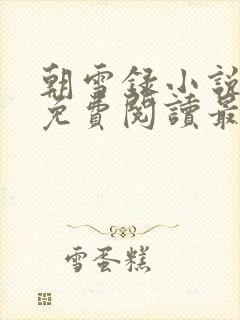 朝雪録小說
免費閱讀最
雪蛋糕